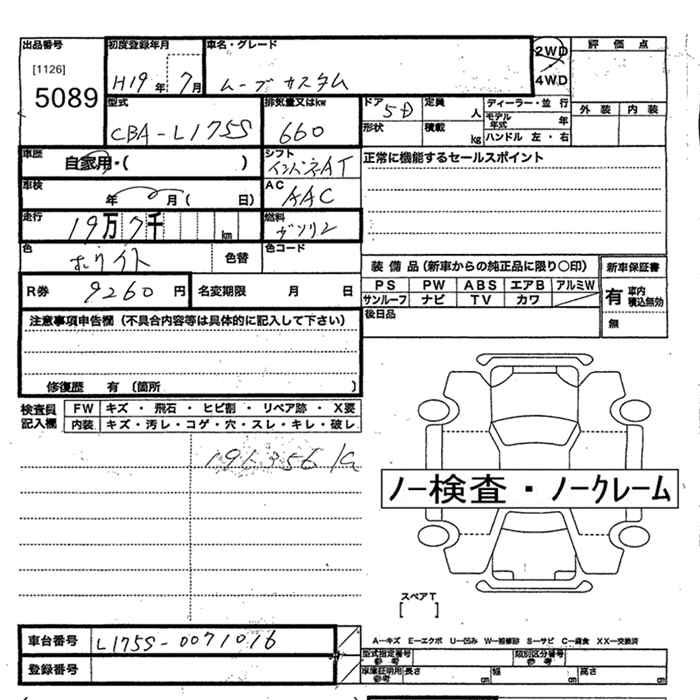 出品番号 初度登録年月 車名・グレード 2WD 評価点
[1126] H19年 7月 ムーブ カスタム 4WD
5089 型式 排気量又はkw ドア 5D 定員 人 ディーラー・並行 外装 内装
CBA-L175S 660 形状 積載 kg モデル年式 年
ハンドル 左・右
車歴 自家用・( ) シフト インパネAT 正常に機能するセールスポイント
車検 年 月( 日) AC AAC
走行 19万7千 km 燃料 ガソリン
色 ホワイト 色替 色コード
装備品(新車からの純正品に限り○印) 新車保証書
R券 9260円 名変期限 月 日 PS PW ABS エアB アルミW 有 車内積込無効
サンルーフ ナビ TV カワ
注意事項申告欄(不具合内容等は具体的に記入して下さい) 後日品 無
修復歴 有(箇所 )
検査員記入欄 FW キズ・飛石・ヒビ割・リペア跡・X要
内装 キズ・汚レ・コゲ・穴・スレ・キレ・破レ
196356
ノー検査・ノークレーム
スペアT
[ ]
車台番号 L175S-0071016 A-キズ E-エクボ U-凹み W-補修跡 S-サビ C-腐食 XX-交換済
登録番号 型式指定番号 参考 類別区分番号 参考
車庫証明用 参考 長さ cm 幅 cm 高さ cm